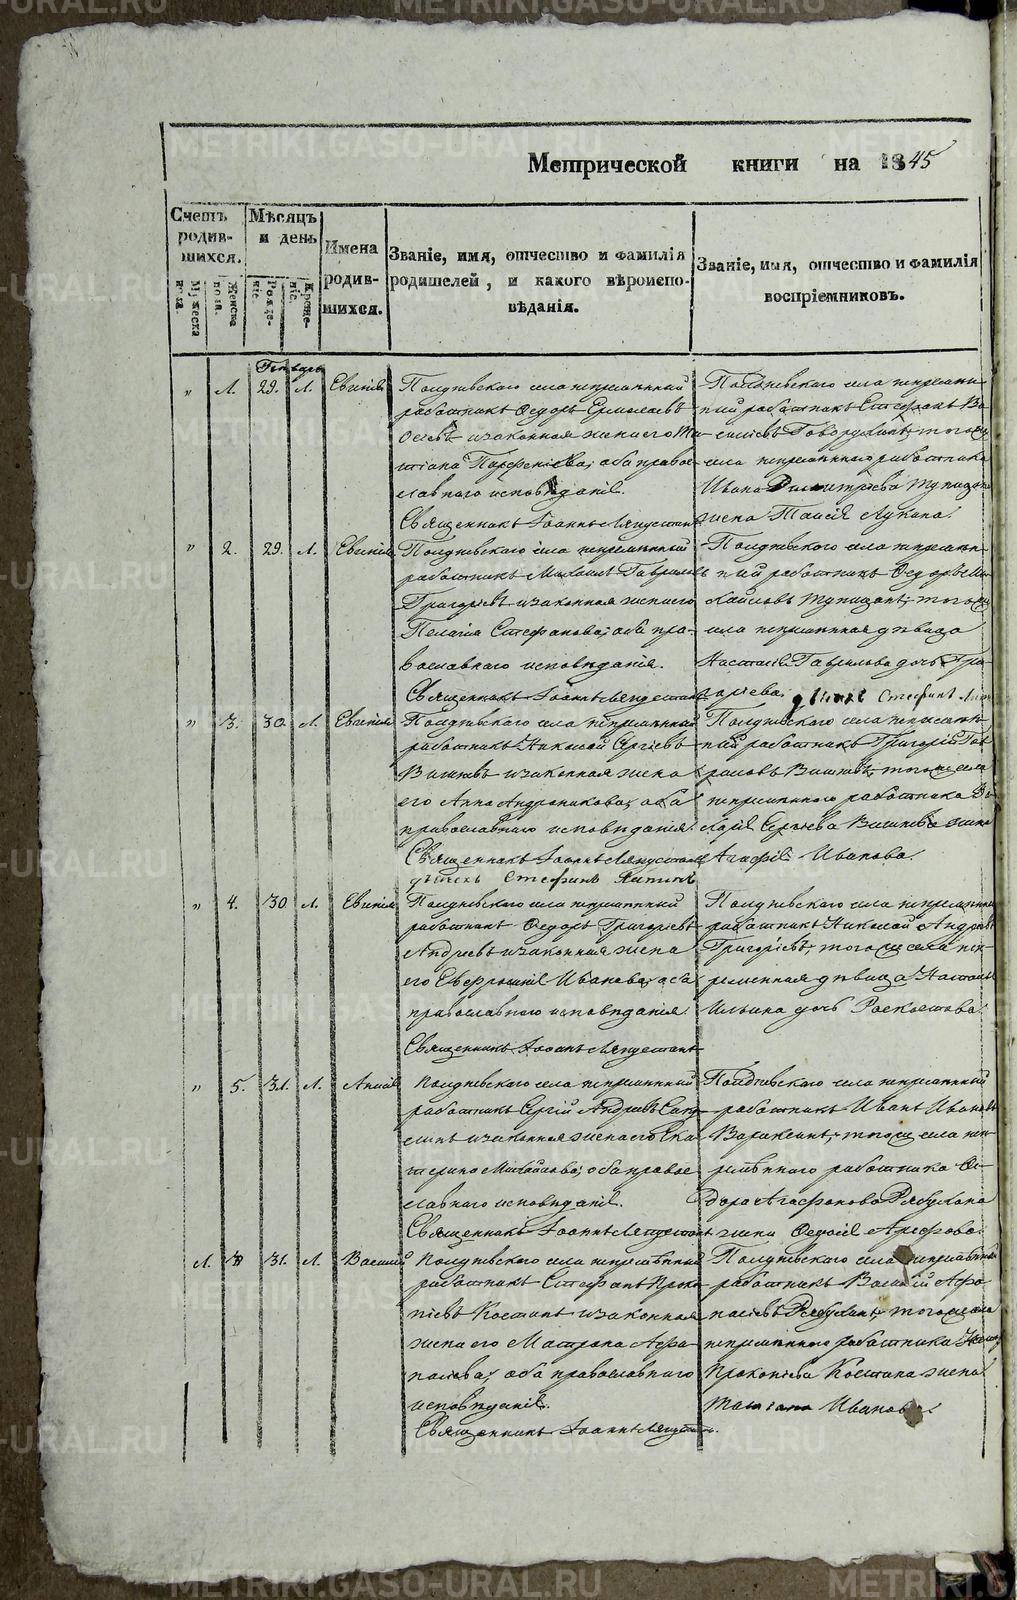 Метрической книги на 1845
Счетъ родив-шихся.
Мужеска пола.
Женска пола.
Мѣсяцъ и день
Рожде-ніе.
Креще-ніе.
Имена родив-шихся.
Званіе, имя, отчество и фамилія
родителей, и какого вѣроиспо-
вѣданія.
Званіе, имя, отчество и фамилія
воспріемниковъ.
Генварь
" 1. 29. 1. Евгенія
Полдневскаго села непремѣнный
работникъ Ѳедоръ Ермолаевъ
и законная жена его Та-
тіана Парфеніева, оба право-
славнаго исповѣданія.
Священникъ Іоаннъ
Полдневскаго села непремѣн-
ный работникъ Стефанъ Ва-
сильевъ того же
села непремѣннаго работника
Ивана Димитріева
жена Таисія Лукина.
" 2. 29. 1. Евгенія
Полдневскаго села непремѣнный
работникъ Михаилъ Гавриловъ
Григорьевъ и законная жена его
Пелагія Стефанова, оба пра-
вославнаго исповѣданія.
Священникъ Іоаннъ
Полдневскаго села непремѣн-
ный работникъ Ѳедоръ Ми-
хайловъ того же
села непремѣнная дѣвица
Настасія Гаврилова дочь Гри-
горьева. дьячекъ Стефанъ
" 3. 30. 1. Евгенія
Полдневскаго села непремѣнный
работникъ Николай Сергіевъ
и законная жена
его Анна Андроникова, оба
православнаго исповѣданія.
Священникъ Іоаннъ
дьячекъ Стефанъ
Полдневскаго села непремѣн-
ный работникъ Григорій Гав-
риловъ того же села
непремѣннаго работника
Сергіева жена
Агафія Иванова.
" 4. 30 1. Евгенія
Полдневскаго села непремѣнный
работникъ Ѳедоръ Григорьевъ
Андреевъ и законная жена
его Евфросинія Иванова, оба
православнаго исповѣданія.
Священникъ Іоаннъ
Полдневскаго села непремѣнный
работникъ Николай Андреевъ
Григорьевъ, того же села неп-
ремѣнная дѣвица Настасья
Ильина дочь
" 5. 31. 1. Анисія
Полдневскаго села непремѣнный
работникъ Сергій Андреевъ
и законная жена его Ека-
терина Михайлова, оба право-
славнаго исповѣданія.
Священникъ Іоаннъ
Полдневскаго села непремѣнный
работникъ Иванъ Ивановъ
того же села неп-
ремѣннаго работника Ѳе-
дора Агафонова
жена Ѳедосія Арефова.
1. " 31. 1. Василій
Полдневскаго села непремѣнный
работникъ Стефанъ Проко-
піевъ Костинъ и законная
жена его Матрона Аѳа-
насіева, оба православнаго
исповѣданія.
Священникъ Іоаннъ
Полдневскаго села непремѣнный
работникъ Василій Аѳа-
насіевъ того же села
непремѣннаго работника
Прокопіева Костина жена
Татіана Иванова.
METRIKI.GASO-URAL.RU